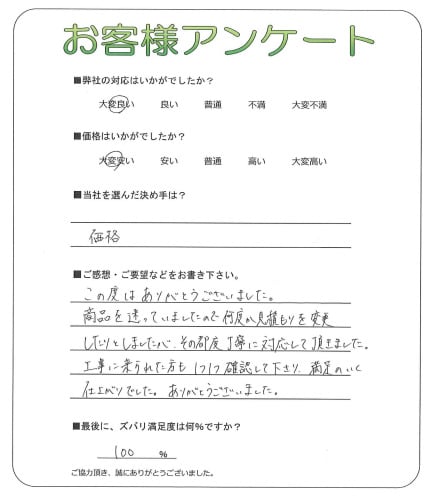 お客様アンケート
■弊社の対応はいかがでしたか?
大変良い 良い 普通 不満 大変不満
■価格はいかがでしたか?
大変安い 安い 普通 高い 大変高い
■当社を選んだ決め手は?
価格
■ご感想・ご要望などをお書き下さい。
この度はありがとうございました。
商品を迷っていましたので何度か見積もりを変更
したりとしましたが、その都度丁寧に対応して頂きました。
工事に来られた方も1つ1つ確認して下さり、満足のいく
仕上がりでした。ありがとうございました。
■最後に、ズバリ満足度は何%ですか?
100 %
ご協力頂き、誠にありがとうございました。